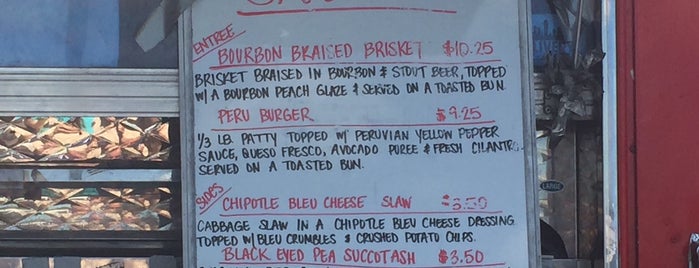 ENTREE
BOURBON BRAISED BRISKET $10.25
BRISKET BRAISED IN BOURBON & STOUT BEER, TOPPED
W/ A BOURBON PEACH GLAZE & SERVED ON A TOASTED BUN.
PERU BURGER $9.25
1/3 LB. PATTY TOPPED W/ PERUVIAN YELLOW PEPPER
SAUCE, QUESO FRESCO, AVOCADO PUREE & FRESH CILANTRO
SERVED ON A TOASTED BUN.
SIDES
CHIPOTLE BLEU CHEESE SLAW $3.50
CABBAGE SLAW IN A CHIPOTLE BLEU CHEESE DRESSING
TOPPED W/ BLEU CRUMBLES & CRUSHED POTATO CHIPS.
BLACK EYED PEA SUCCOTASH $3.50
LARGE